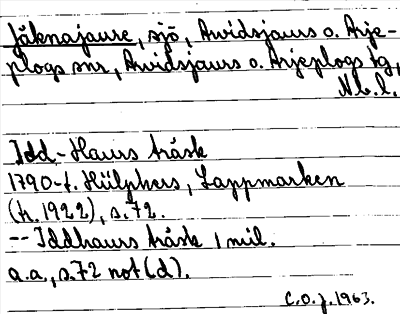 Jäknajaure, sjö, Arvidsjaurs o. Arje-
plogs snr, Arvidsjaurs o. Arjeplogs tg,
Nb.l.
Idd-Haurs träsk
1790-t. Hülphers, Lappmarken
(tr. 1922), s. 72.
-- Iddhaurs träsk 1 mil.
a.a., s. 72 not (d).
C.O.J. 1963.